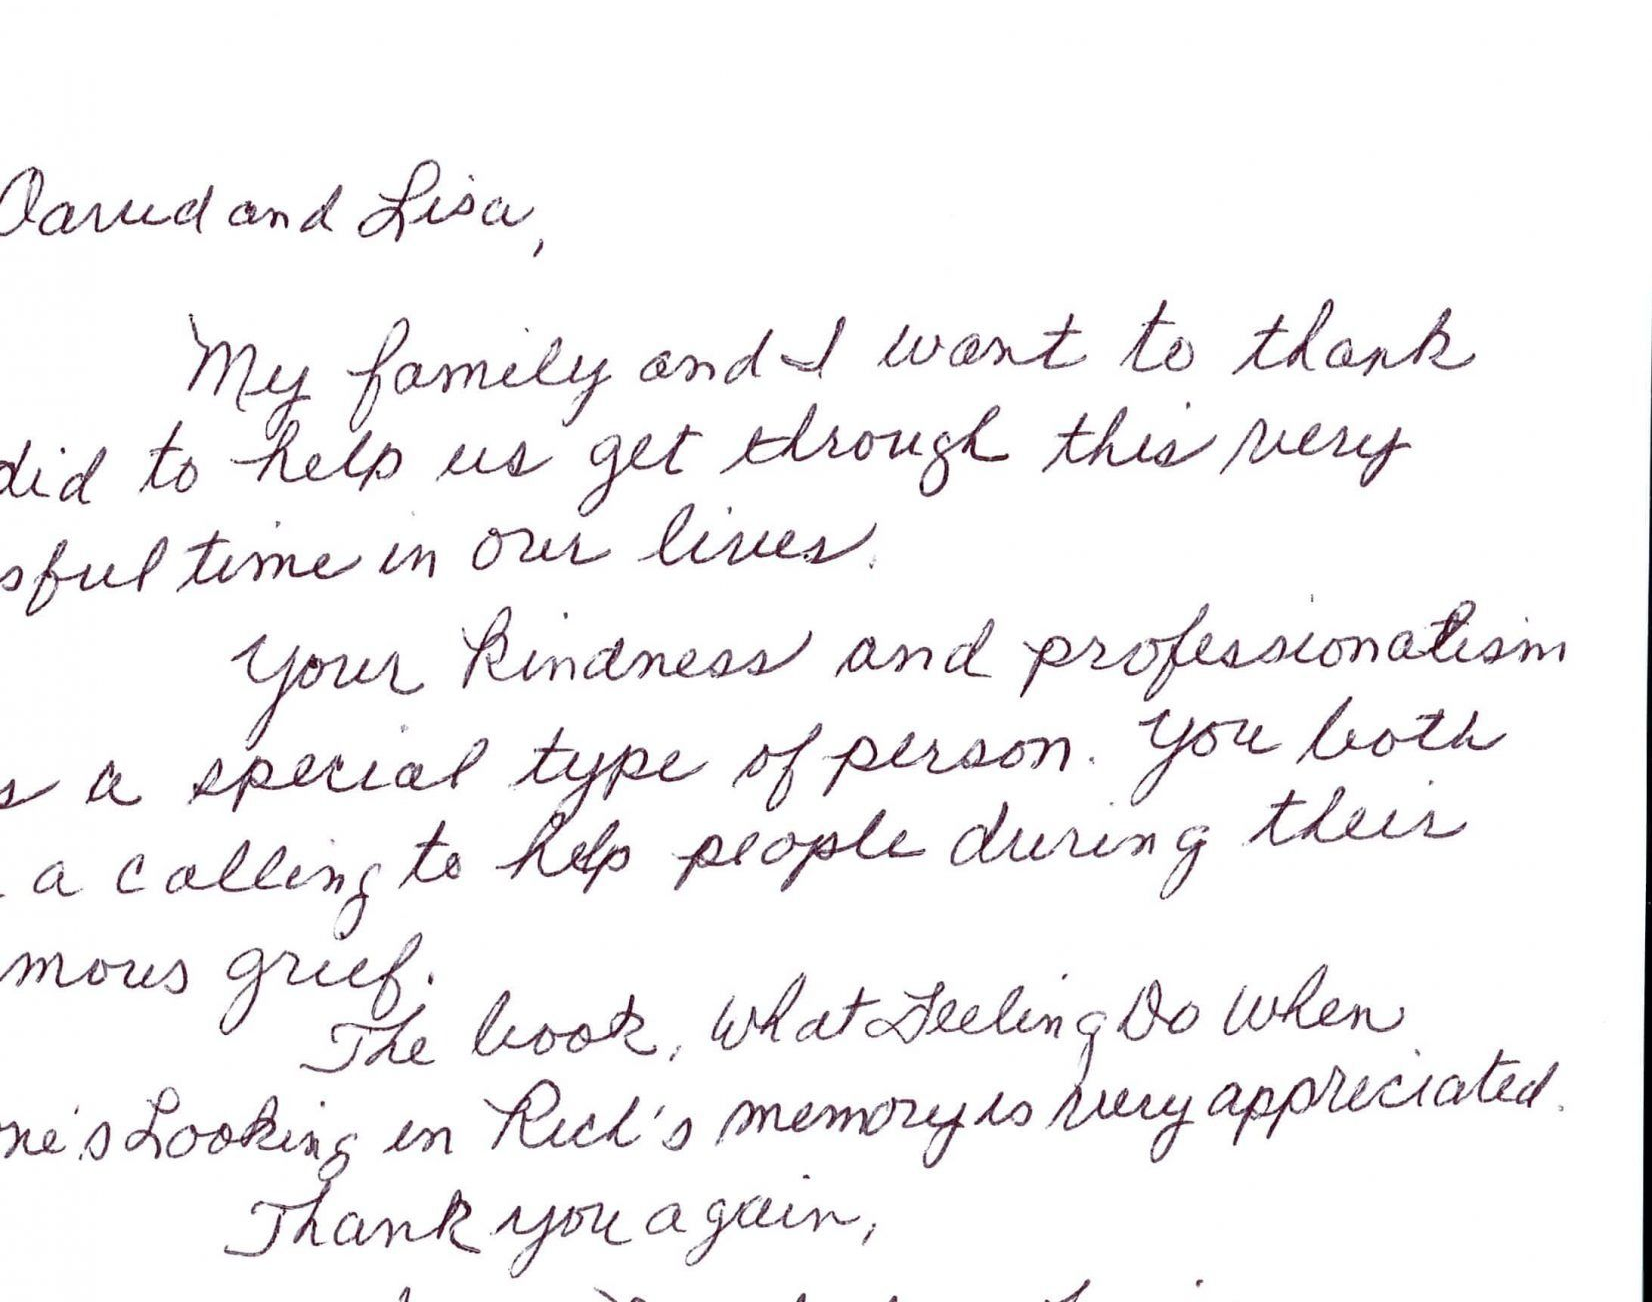 David and Lisa,
My family and I want to thank
did to help us get through this very
sful time in our lives.
Your kindness and professionalism
s a special type of person. You both
a calling to help people during their
mous grief.
The book, What Feeling Do When
ne's Looking in Rich's memory is very appreciated.
Thank you again,